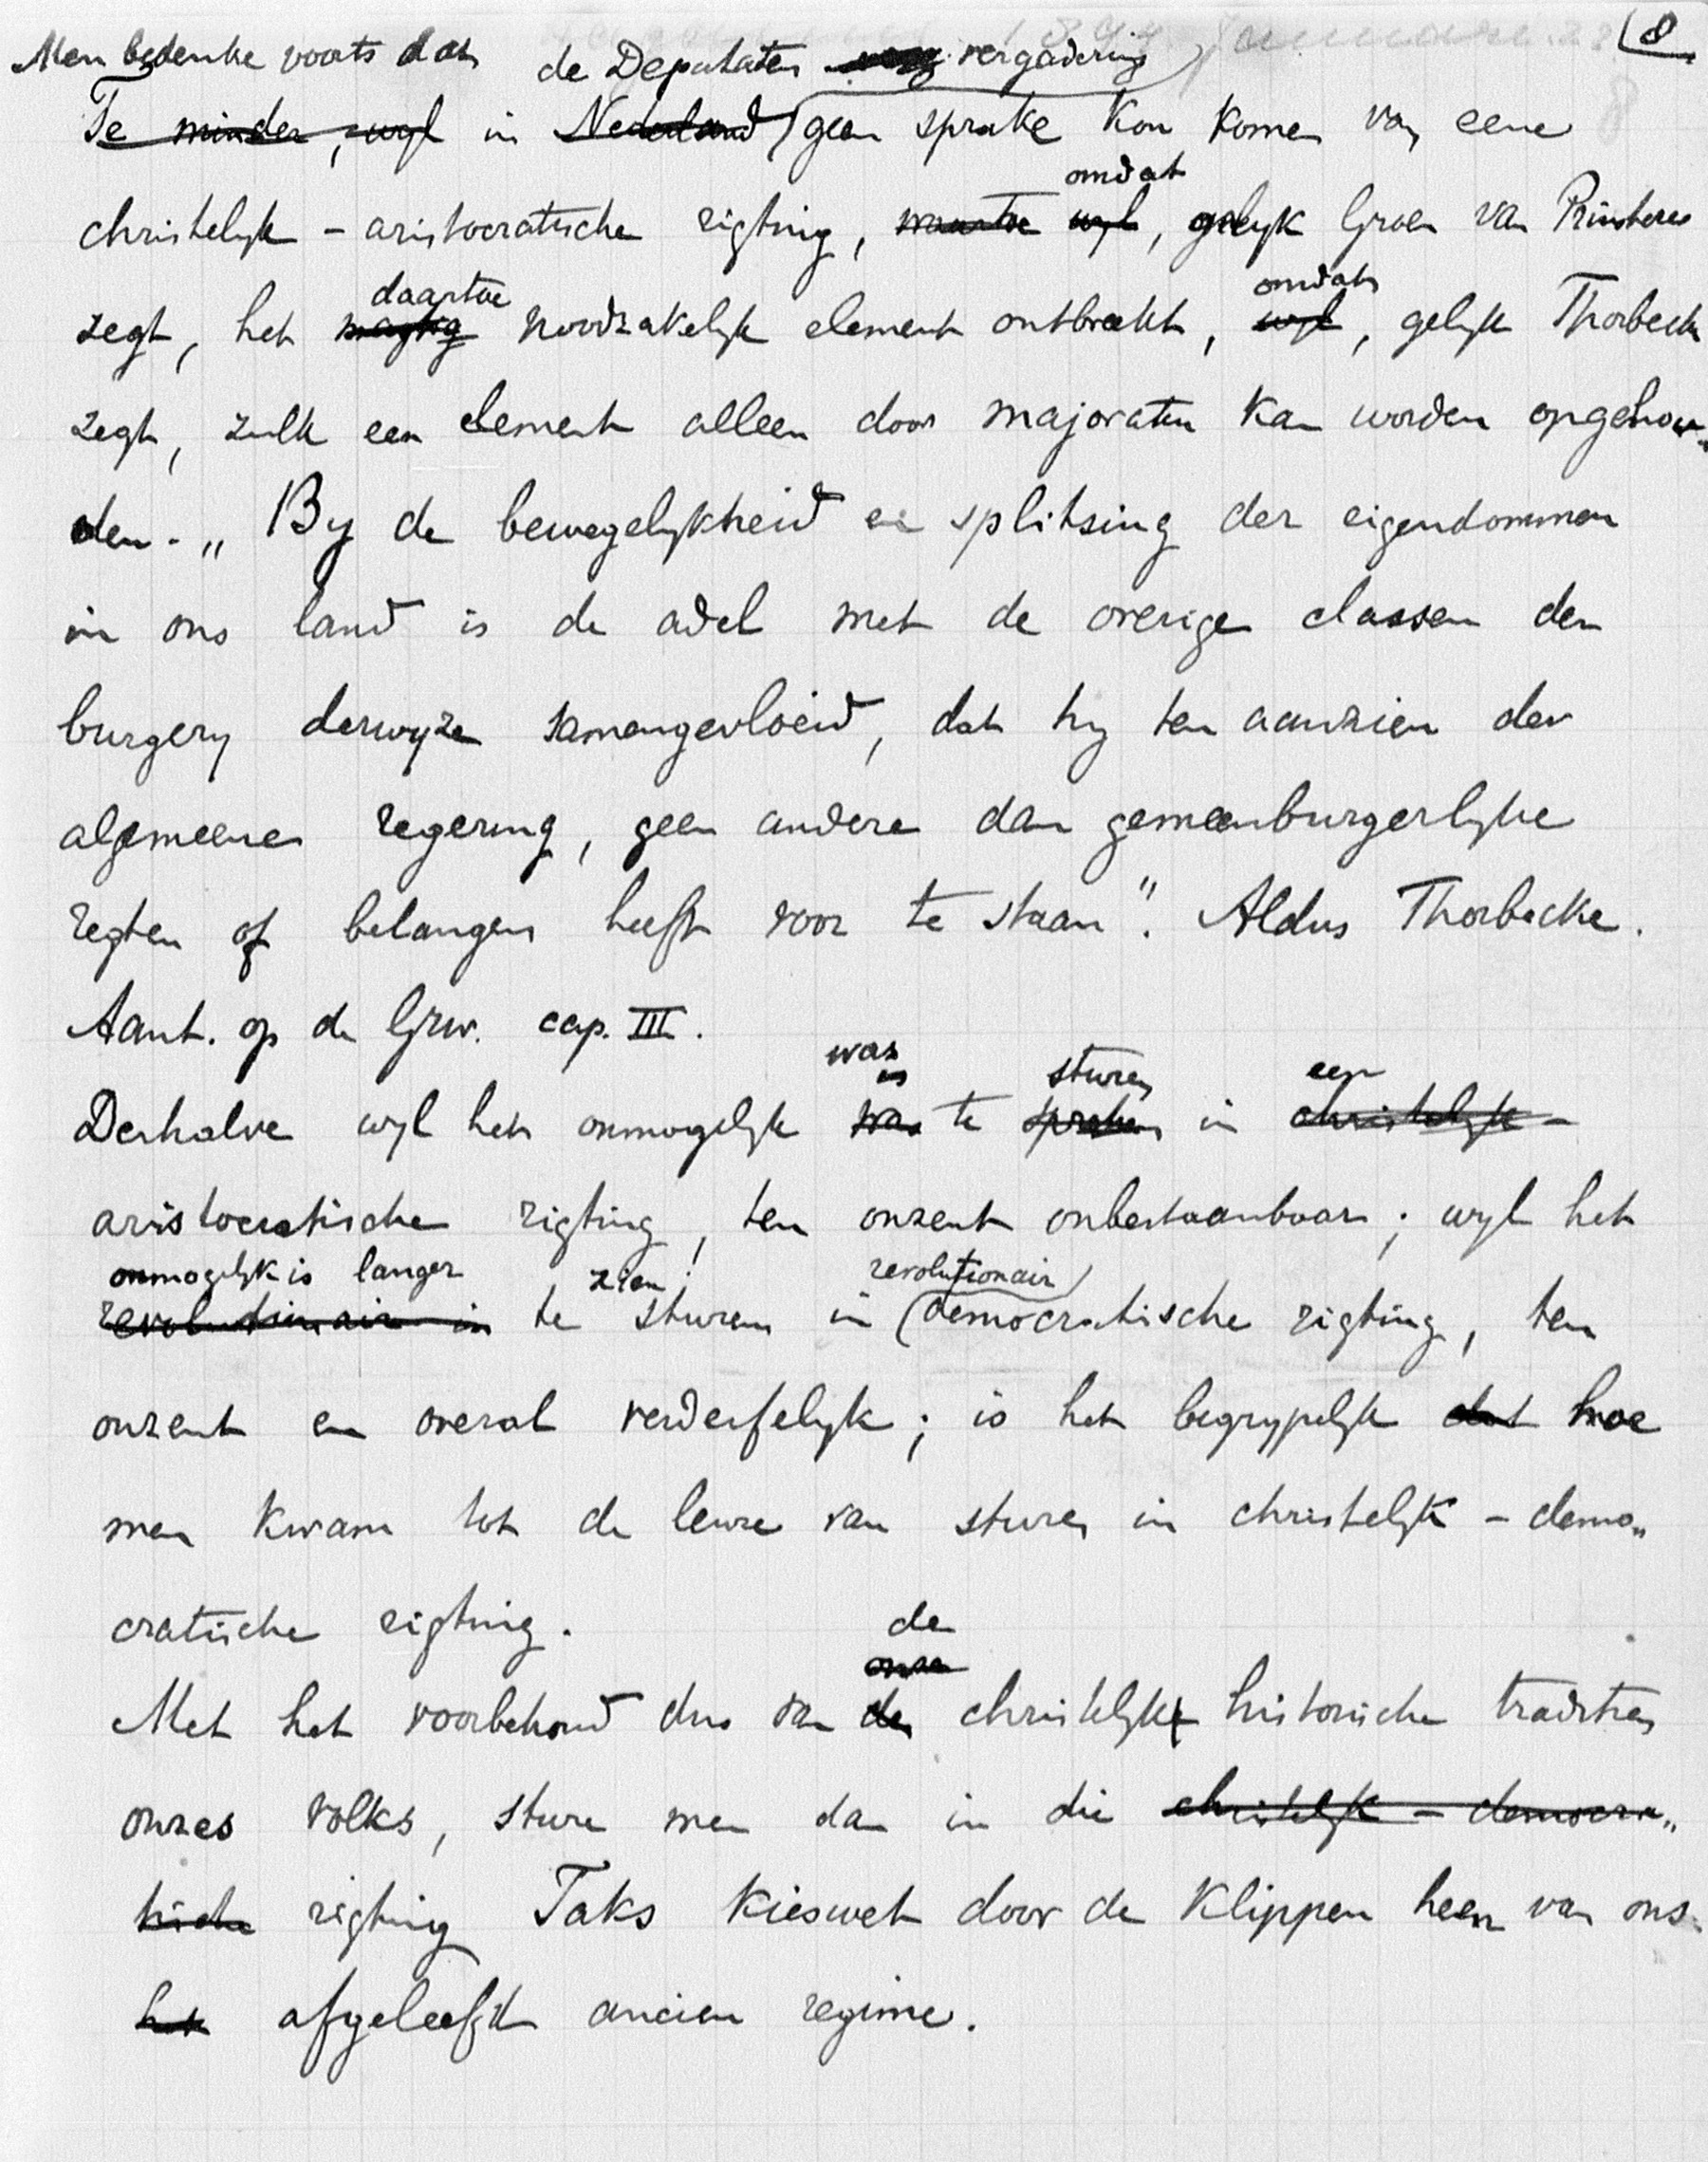 8
Men bedenke voorts dat de Deputaten vergadering
Te minder, wyl in Nederland geen sprake kon komen van eene
omdat
christelyk - aristocratische rigting, waartoe wyl, gelyk Groen van Prinsterer
daartoe omdat
zegt, het magtig noodzakelyk element ontbreekt, wyl, gelyk Thorbecke
zegt, zulk een element alleen door majoraten kan worden opgehou„
den. „By de bewegelykheid en splitsing der eigendommen
in ons land is de adel met de overige classen der
burgery derwyze samengevloeid, dat hy ten aanzien der
algemeene regering, geen andere dan gemeenburgerlyke
regten of belangen heeft voor te staan". Aldus Thorbecke.
Aant. op de Grw. cap. III.
was is sturen een
Derhalve wyl het onmogelyk was te spreken in christelyk -
aristocratische rigting, ten onzent onbestaanbaar; wyl het
onmogelyk is langer zien revolutionair
revolutionair in te sturen in democratische rigting, ten
onzent en overal verderfelyk; is het begrypelyk dat hoe
men kwam tot de leuze van sturen in christelyk - demo„
cratische rigting.
de
onze
Met het voorbehoud dus van der christelyk historische traditien
onzes volks, sture men dan in die christelyk - democra„
tische rigting Taks kieswet door de klippen heen van ons
het afgeleefd ancien regime.